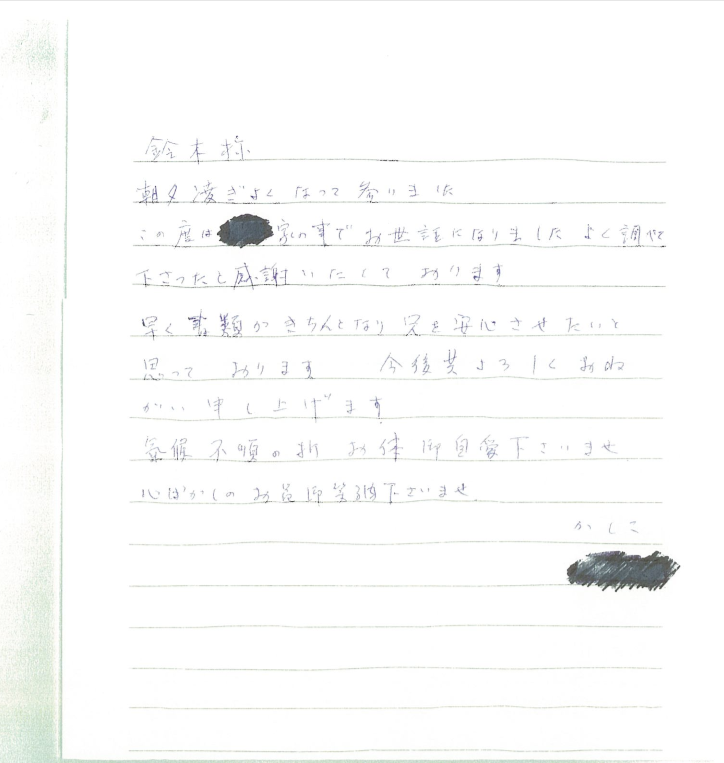 鈴木様
朝夕凌ぎよくなって参りました
この度は 家の事でお世話になりました よく調べて
下さったと感謝いたしております
早く書類がきちんとなり兄を安心させたいと
思っております 今後共よろしくおね
がい申し上げます
気候不順の折 お体御自愛下さいませ
心ばかしのお品御笑納下さいませ
かしこ